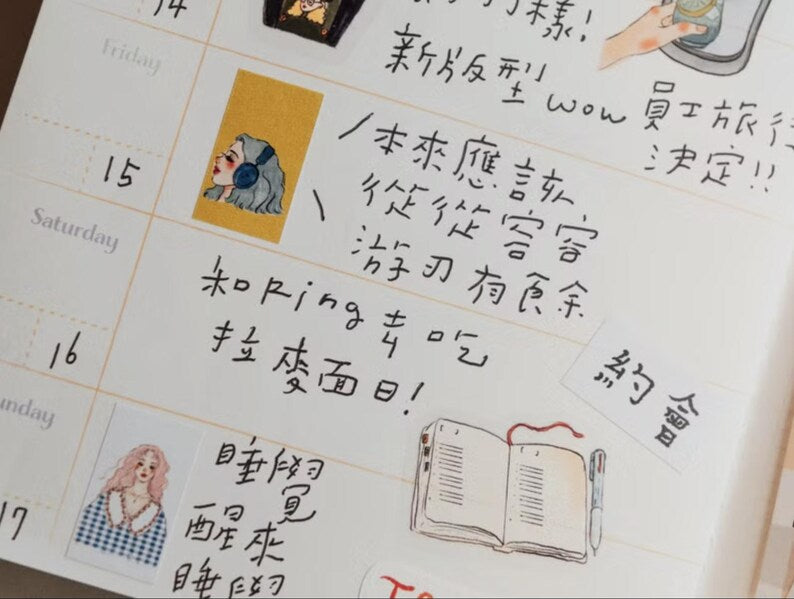 14
樣!
新版型 wow
員工旅行
決定!!
Friday
15
本來應該
從從容容
游刃有食余
Saturday
16
和 Ring 去吃
拉麥面日!
約會
unday
17
睡學
覓
醒來
睡學